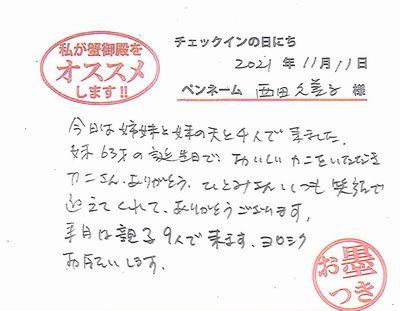 私が蟹御殿を
オススメ
します!!
チェックインの日にち
2021年11月11日
ペンネーム 西田久美子 様
今日は姉妹と妹の夫と4人で来ました。
妹63才の誕生日で、おいしいカニをいただき
カニさん、ありがとう。ひとみさんいつも笑顔で
迎えてくれて、ありがとうございます。
来月は親子9人で来ます。ヨロシク
お願いします。
お墨
つき